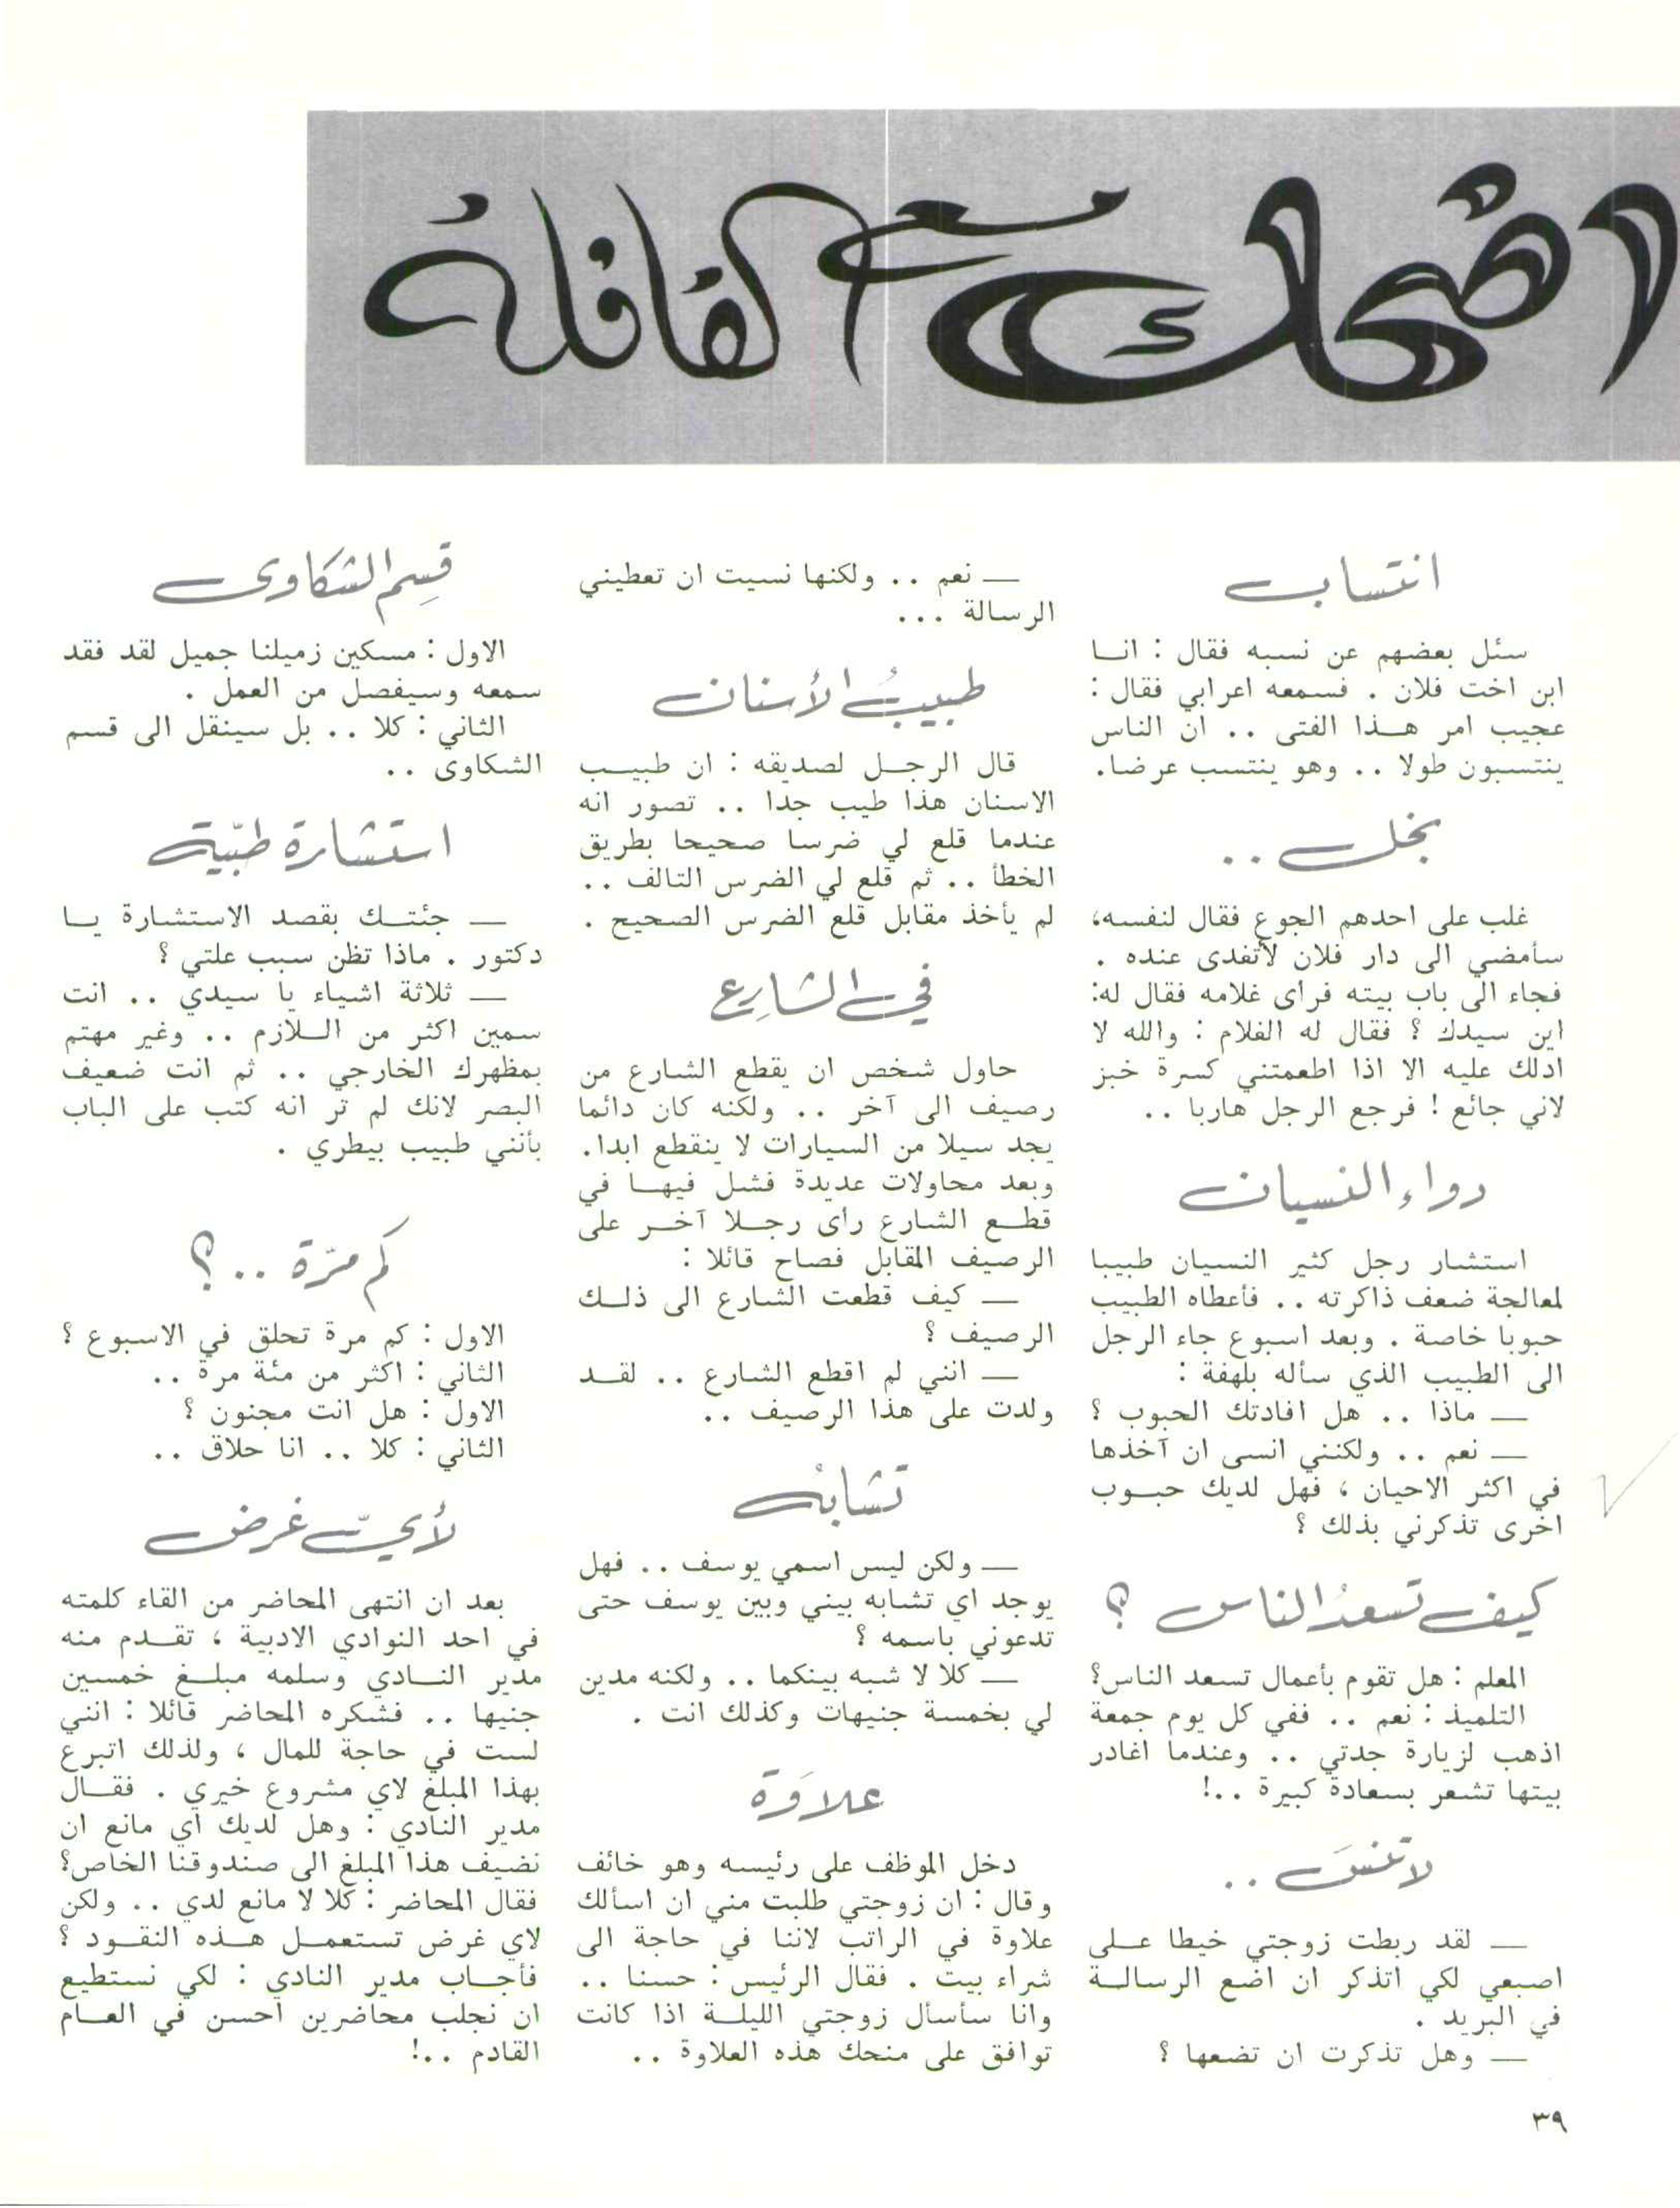 اضحك مع القافلة
انتساب
سئل بعضهم عن نسبه فقال : انـا
ابن اخت فلان . فسمعه اعرابي فقال :
عجيب امر هـذا الفتى .. ان الناس
ينتسبون طولا .. وهو ينتسب عرضا.
بخل ..
غلب على احدهم الجوع فقال لنفسه،
سأمضي الى دار فلان لاتغدى عنده .
فجاء الى باب بيته فرأى غلامه فقال له:
اين سيدك ؟ فقال له الغلام : والله لا
ادلك عليه الا اذا اطعمتني كسرة خبز
لاني جائع ! فرجع الرجل هاربا ..
دواء النسيان
استشار رجل كثير النسيان طبيبا
لمعالجة ضعف ذاكرته .. فأعطاه الطبيب
حبوبا خاصة . وبعد اسبوع جاء الرجل
الى الطبيب الذي سأله بلهفة :
— ماذا .. هل افادتك الحبوب ؟
— نعم .. ولكنني انسى ان آخذها
في اكثر الاحيان ، فهل لديك حبـوب
اخرى تذكرني بذلك ؟
كيف تسعدُ الناس ؟
المعلم : هل تقوم بأعمال تسعد الناس؟
التلميذ : نعم .. ففي كل يوم جمعة
اذهب لزيارة جدتي .. وعندما اغادر
بيتها تشعر بسعادة كبيرة ..!
لا تنسَ ..
— لقد ربطت زوجتي خيطا عـلى
اصبعي لكي اتذكر ان اضع الرسالـة
في البريد .
— وهل تذكرت ان تضعها ؟
— نعم .. ولكنها نسيت ان تعطيني
الرسالة ...
طبيبُ الأسنان
قال الرجـل لصديقه : ان طبيـب
الاسنان هذا طيب جدا .. تصور انه
عندما قلع لي ضرسا صحيحا بطريق
الخطأ .. ثم قلع لي الضرس التالف ..
لم يأخذ مقابل قلع الضرس الصحيح .
في الشارِع
حاول شخص ان يقطع الشارع من
رصيف الى آخر .. ولكنه كان دائما
يجد سيلا من السيارات لا ينقطع ابدا.
وبعد محاولات عديدة فشل فيهـا في
قطـع الشارع رأى رجـلا آخـر على
الرصيف المقابل فصاح قائلا :
— كيف قطعت الشارع الى ذلـك
الرصيف ؟
— انني لم اقطع الشارع .. لقـد
ولدت على هذا الرصيف ..
تشابُه
— ولكن ليس اسمي يوسف .. فهل
يوجد اي تشابه بيني وبين يوسف حتى
تدعوني باسمه ؟
— كلا لا شبه بينكما .. ولكنه مدين
لي بخمسة جنيهات وكذلك انت .
علاوَة
دخل الموظف على رئيسه وهو خائف
وقال : ان زوجتي طلبت مني ان اسألك
علاوة في الراتب لاننا في حاجة الى
شراء بيت . فقال الرئيس : حسنا ..
وانا سأسأل زوجتي الليلـة اذا كانت
توافق على منحك هذه العلاوة ..
قسِم الشكاوى
الاول : مسكين زميلنا جميل لقد فقد
سمعه وسيفصل من العمل .
الثاني : كلا .. بل سينقل الى قسم
الشكاوى ..
استشارة طبّية
— جئتـك بقصد الاستشارة يـا
دكتور . ماذا تظن سبب علتي ؟
— ثلاثة اشياء يا سيدي .. انت
سمين اكثر من الـلازم .. وغير مهتم
بمظهرك الخارجي .. ثم انت ضعيف
البصر لانك لم تر انه كتب على الباب
بأنني طبيب بيطري .
كم مرّة ..؟
الاول : كم مرة تحلق في الاسبوع ؟
الثاني : اكثر من مئة مرة ..
الاول : هل انت مجنون ؟
الثاني : كلا .. انا حلاق ..
لأيّ غرض
بعد ان انتهى المحاضر من القاء كلمته
في احد النوادي الادبية ، تقـدم منه
مدير النـادي وسلمه مبلـغ خمسين
جنيها .. فشكره المحاضر قائلا : انني
لست في حاجة للمال ، ولذلك اتبرع
بهذا المبلغ لاي مشروع خيري . فقـال
مدير النادي : وهل لديك اي مانع ان
نضيف هذا المبلغ الى صندوقنا الخاص؟
فقال المحاضر : كلا لا مانع لدي .. ولكن
لاي غرض تستعمـل هـذه النقـود ؟
فأجـاب مدير النادي : لكي نستطيع
ان نجلب محاضرين احسن في العـام
القادم ..!
٣٩